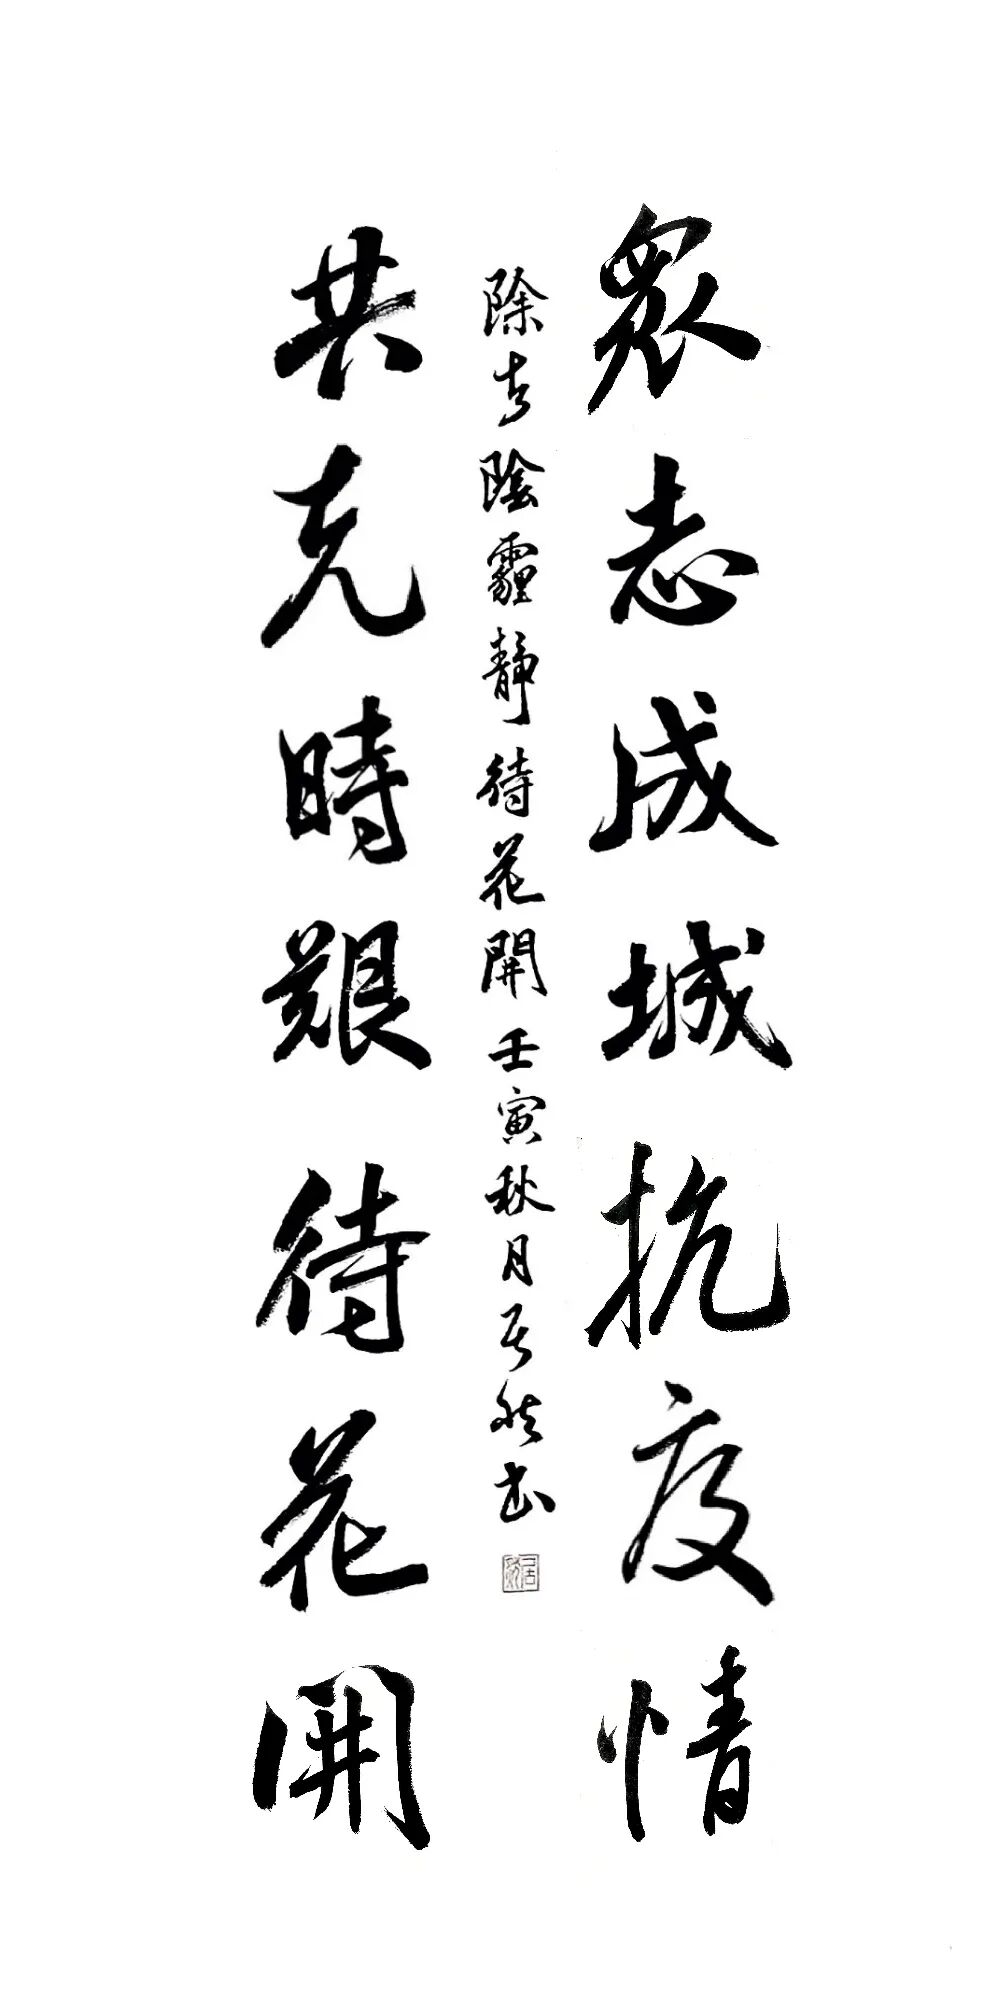 眾志成城抗疫情
除去陰霾靜待花開壬寅秋月居然书
共克時艱待花開
居然